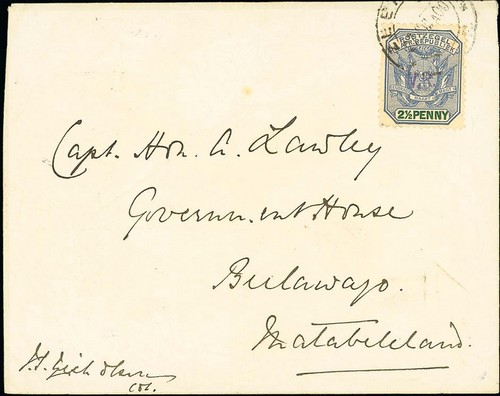 POSTZEGEL
2½ PENNY
Capt. Hon. A. Lawley
Government House
Bulawayo.
Matabeleland.
Col.